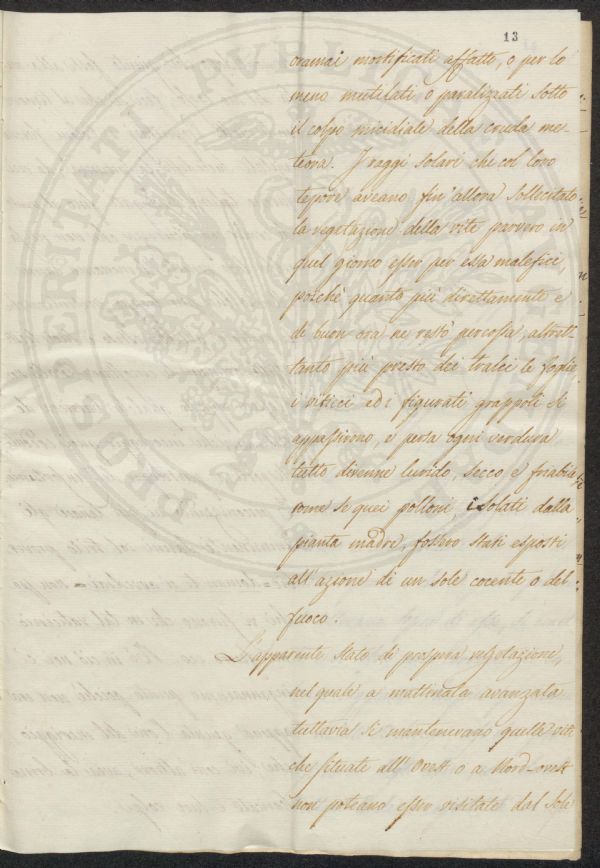 13
oramai mortificati affatto, o per lo
meno mutilati, o paralizzati sotto
il colpo micidiale della cruda me-
teora. I raggi solari che col loro
tepore aveano fin' allora sollecitato
la vegetazione della vite parvero in
quel giorno esser per essa malefici,
poichè quanto più direttamente e
di buon ora ne restò percossa, altret-
tanto più presto dei tralci le foglie
i viticci ed i figurati grappoli si
appassirono, e persa ogni verdura
tutto divenne lurido, secco, e friabile
come se quei polloni, isolati dalla
pianta madre, fossero stati esposti
all'azione di un sole cocente o del
fuoco.
L'apparente stato di prospera vegetazione,
nel quale a mattinata avanzata
tuttavia si mantenevano quelle viti
che situate all'Ovest o a Nord-ovest
non poteano esser visitate dal Sole
PROSPERITATI PVBLICAE